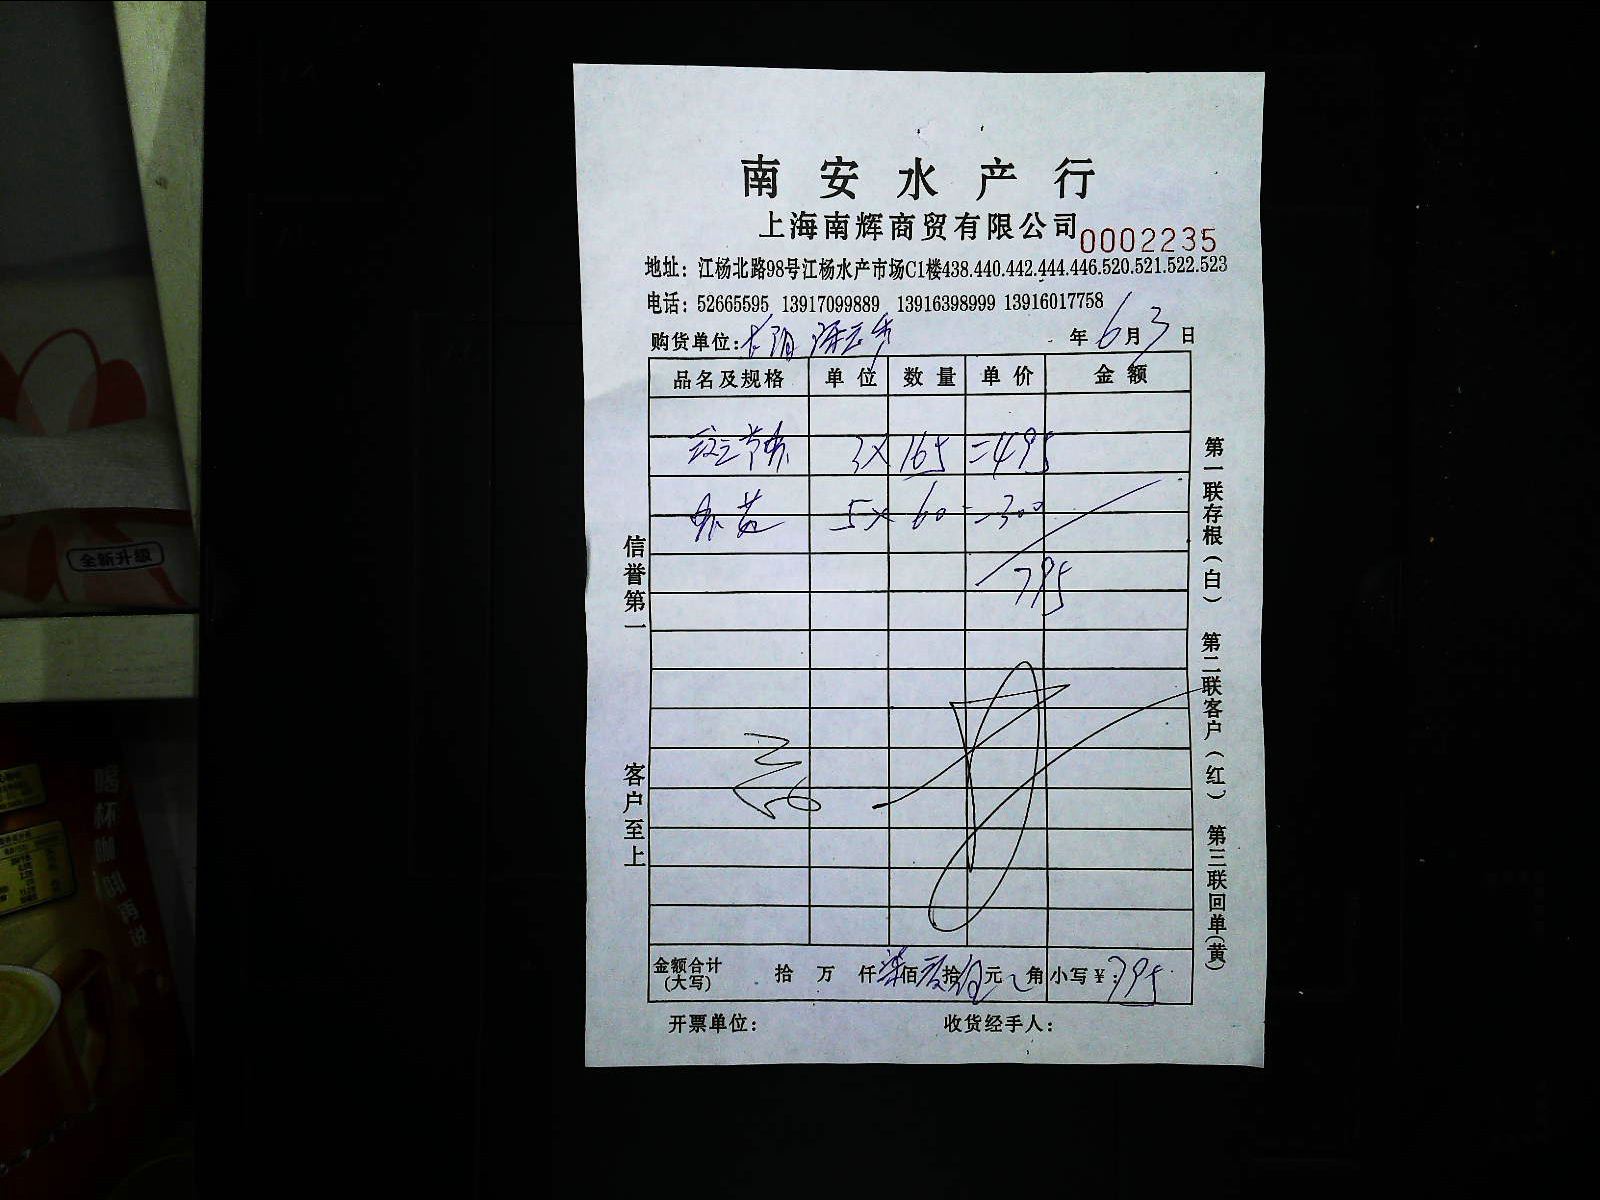 南安水产行
上海南辉商贸有限公司 0002235
地址：江杨北路98号江杨水产市场C1楼438.440.442.444.446.520.521.522.523
电话：52665595 13917099889 13916398999 13916017758
购货单位： 年 6 月 3 日
品名及规格 单位 数量 单价 金额
3×165=495
5×60=300
795
信誉第一
客户至上
第一联存根（白） 第二联客户（红） 第三联回单（黄）
金额合计（大写） 拾 万 仟 柒 佰 玖 拾 伍 元 角 小写￥：795
开票单位： 收货经手人：
全新升级
喝杯咖啡再说